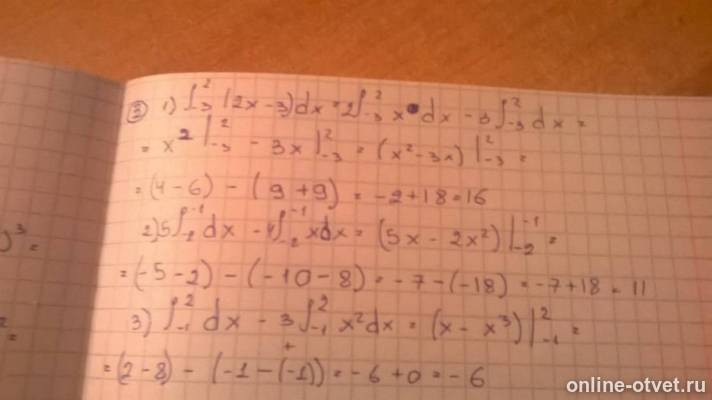 ③ 1) ∫₋₃² (2x - 3)dx = 2∫₋₃² x dx - 3∫₋₃² dx =
= x² |₋₃² - 3x |₋₃² = (x² - 3x) |₋₃² =
= (4 - 6) - (9 + 9) = -2 + 18 = 16
2) 5∫₋₂⁻¹ dx - 4∫₋₂⁻¹ xdx = (5x - 2x²) |₋₂⁻¹ =
= (-5 - 2) - (-10 - 8) = -7 - (-18) = -7 + 18 = 11
3) ∫₋₁² dx - 3∫₋₁² x²dx = (x - x³) |₋₁² =
= (2 - 8) - (-1 - (-1)) = -6 + 0 = -6
)³ =
² =
online-otvet.ru